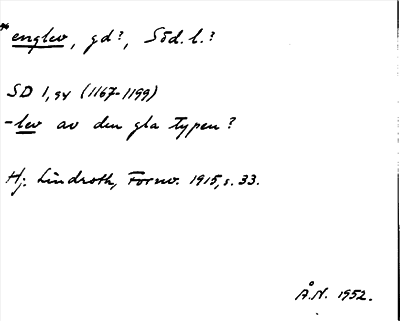 *englev, gd?, Söd. l.?
SD 1, 94 (1167-1199)
-lev av den gla typen?
Hj. Lindroth, Fornv. 1915, s. 33.
Å.N. 1952.